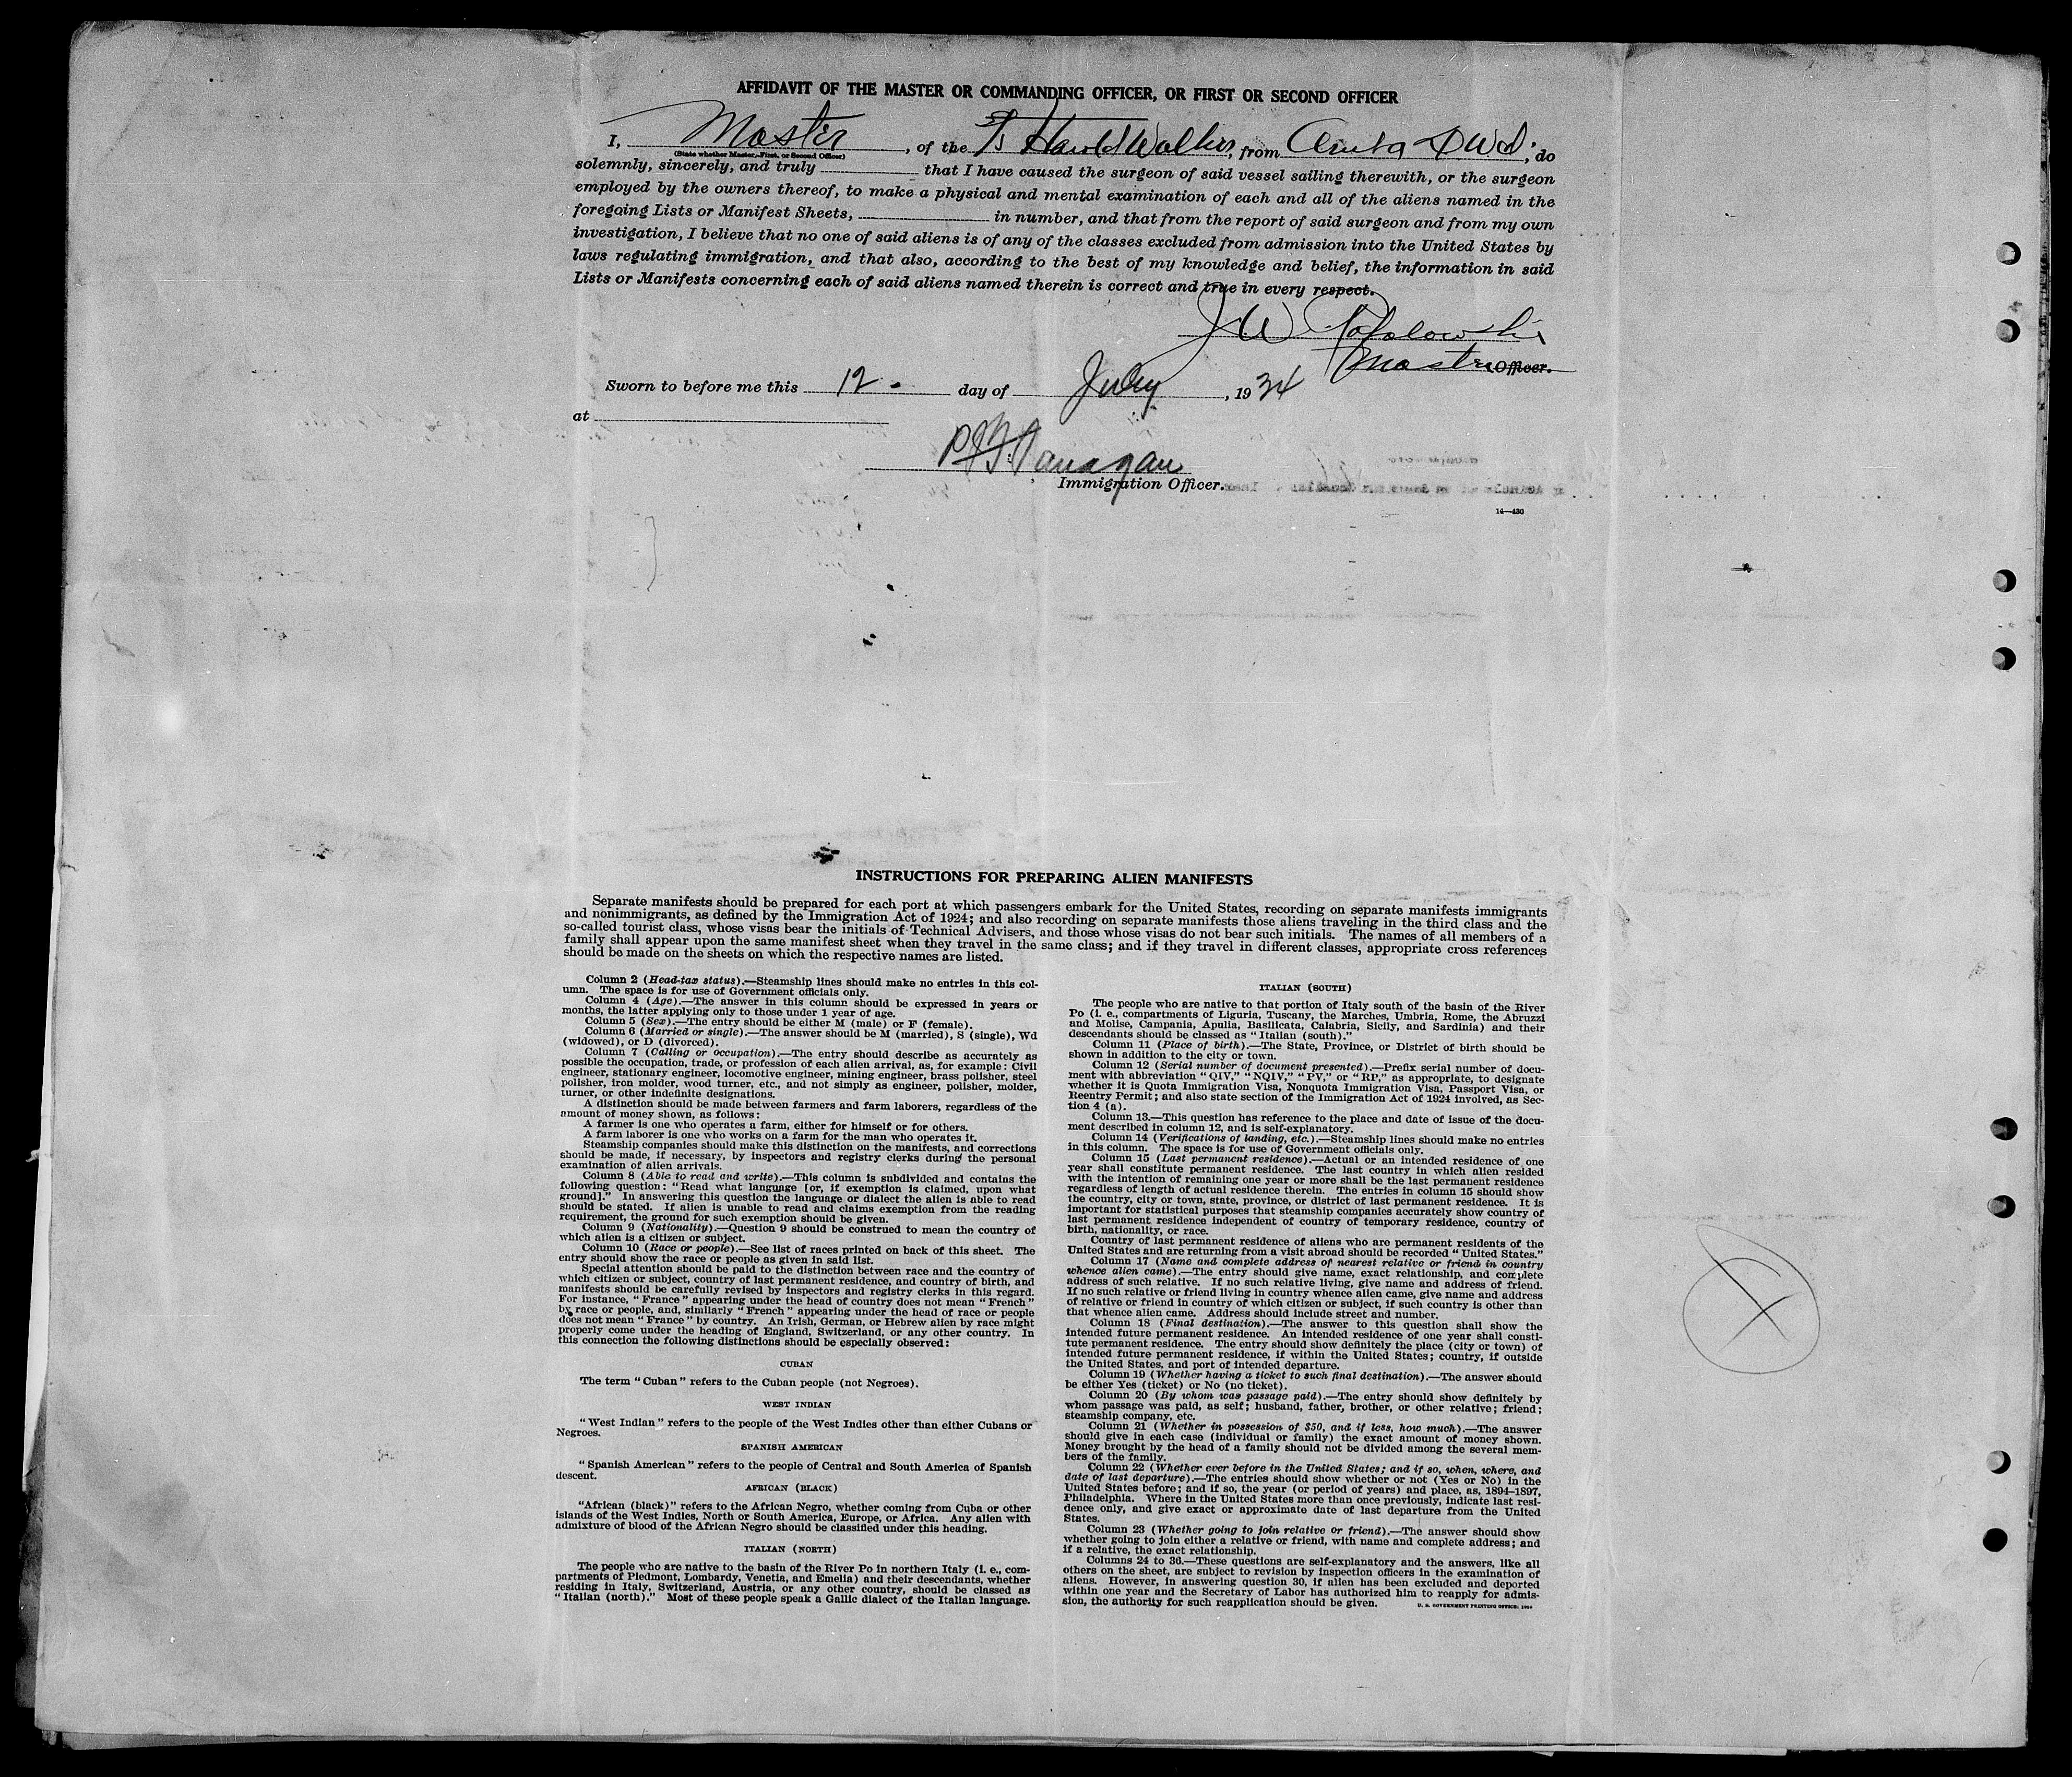 AFFIDAVIT OF THE MASTER OR COMMANDING OFFICER, OR FIRST OR SECOND OFFICER
I, Master, of the Harold Walker, from Aruba DWI, do
(State whether Master, First, or Second Officer)
solemnly, sincerely, and truly that I have caused the surgeon of said vessel sailing therewith, or the surgeon
employed by the owners thereof, to make a physical and mental examination of each and all of the aliens named in the
foregoing Lists or Manifest Sheets, in number, and that from the report of said surgeon and from my own
investigation, I believe that no one of said aliens is of any of the classes excluded from admission into the United States by
laws regulating immigration, and that also, according to the best of my knowledge and belief, the information in said
Lists or Manifests concerning each of said aliens named therein is correct and true in every respect.
J W
Master Officer.
Sworn to before me this 12 - day of July, 1934
at
Flanagan
Immigration Officer.
14—430
INSTRUCTIONS FOR PREPARING ALIEN MANIFESTS
Separate manifests should be prepared for each port at which passengers embark for the United States, recording on separate manifests immigrants
and nonimmigrants, as defined by the Immigration Act of 1924; and also recording on separate manifests those aliens traveling in the third class and the
so-called tourist class, whose visas bear the initials of Technical Advisers, and those whose visas do not bear such initials. The names of all members of a
family shall appear upon the same manifest sheet when they travel in the same class; and if they travel in different classes, appropriate cross references
should be made on the sheets on which the respective names are listed.
Column 2 (Head-tax status).—Steamship lines should make no entries in this col-
umn. The space is for use of Government officials only.
Column 4 (Age).—The answer in this column should be expressed in years or
months, the latter applying only to those under 1 year of age.
Column 5 (Sex).—The entry should be either M (male) or F (female).
Column 6 (Married or single).—The answer should be M (married), S (single), Wd
(widowed), or D (divorced).
Column 7 (Calling or occupation).—The entry should describe as accurately as
possible the occupation, trade, or profession of each alien arrival, as, for example: Civil
engineer, stationary engineer, locomotive engineer, mining engineer, brass polisher, steel
polisher, iron molder, wood turner, etc., and not simply as engineer, polisher, molder,
turner, or other indefinite designations.
A distinction should be made between farmers and farm laborers, regardless of the
amount of money shown, as follows:
A farmer is one who operates a farm, either for himself or for others.
A farm laborer is one who works on a farm for the man who operates it.
Steamship companies should make this distinction on the manifests, and corrections
should be made, if necessary, by inspectors and registry clerks during the personal
examination of alien arrivals.
Column 8 (Able to read and write).—This column is subdivided and contains the
following question: "Read what language [or, if exemption is claimed, upon what
ground]." In answering this question the language or dialect the alien is able to read
should be stated. If alien is unable to read and claims exemption from the reading
requirement, the ground for such exemption should be given.
Column 9 (Nationality).—Question 9 should be construed to mean the country of
which alien is a citizen or subject.
Column 10 (Race or people).—See list of races printed on back of this sheet. The
entry should show the race or people as given in said list.
Special attention should be paid to the distinction between race and the country of
which citizen or subject, country of last permanent residence, and country of birth, and
manifests should be carefully revised by inspectors and registry clerks in this regard.
For instance, "France" appearing under the head of country does not mean "French"
by race or people, and, similarly "French" appearing under the head of race or people
does not mean "France" by country. An Irish, German, or Hebrew alien by race might
properly come under the heading of England, Switzerland, or any other country. In
this connection the following distinctions should be especially observed:
CUBAN
The term "Cuban" refers to the Cuban people (not Negroes).
WEST INDIAN
"West Indian" refers to the people of the West Indies other than either Cubans or
Negroes.
SPANISH AMERICAN
"Spanish American" refers to the people of Central and South America of Spanish
descent.
AFRICAN (BLACK)
"African (black)" refers to the African Negro, whether coming from Cuba or other
islands of the West Indies, North or South America, Europe, or Africa. Any alien with
admixture of blood of the African Negro should be classified under this heading.
ITALIAN (NORTH)
The people who are native to the basin of the River Po in northern Italy (i. e., com-
partments of Piedmont, Lombardy, Venetia, and Emelia) and their descendants, whether
residing in Italy, Switzerland, Austria, or any other country, should be classed as
"Italian (north)." Most of these people speak a Gallic dialect of the Italian language.
ITALIAN (SOUTH)
The people who are native to that portion of Italy south of the basin of the River
Po (i. e., compartments of Liguria, Tuscany, the Marches, Umbria, Rome, the Abruzzi
and Molise, Campania, Apulia, Basilicata, Calabria, Sicily, and Sardinia) and their
descendants should be classed as "Italian (south)."
Column 11 (Place of birth).—The State, Province, or District of birth should be
shown in addition to the city or town.
Column 12 (Serial number of document presented).—Prefix serial number of docu-
ment with abbreviation "QIV," "NQIV," "PV," or "RP," as appropriate, to designate
whether it is Quota Immigration Visa, Nonquota Immigration Visa, Passport Visa, or
Reentry Permit; and also state section of the Immigration Act of 1924 involved, as Sec-
tion 4 (a).
Column 13.—This question has reference to the place and date of issue of the docu-
ment described in column 12, and is self-explanatory.
Column 14 (Verifications of landing, etc.).—Steamship lines should make no entries
in this column. The space is for use of Government officials only.
Column 15 (Last permanent residence).—Actual or an intended residence of one
year shall constitute permanent residence. The last country in which alien resided
with the intention of remaining one year or more shall be the last permanent residence
regardless of length of actual residence therein. The entries in column 15 should show
the country, city or town, state, province, or district of last permanent residence. It is
important for statistical purposes that steamship companies accurately show country of
last permanent residence independent of country of temporary residence, country of
birth, nationality, or race.
Country of last permanent residence of aliens who are permanent residents of the
United States and are returning from a visit abroad should be recorded "United States."
Column 17 (Name and complete address of nearest relative or friend in country
whence alien came).—The entry should give name, exact relationship, and complete
address of such relative. If no such relative living, give name and address of friend.
If no such relative or friend living in country whence alien came, give name and address
of relative or friend in country of which citizen or subject, if such country is other than
that whence alien came. Address should include street and number.
Column 18 (Final destination).—The answer to this question shall show the
intended future permanent residence. An intended residence of one year shall consti-
tute permanent residence. The entry should show definitely the place (city or town) of
intended future permanent residence, if within the United States; country, if outside
the United States, and port of intended departure.
Column 19 (Whether having a ticket to such final destination).—The answer should
be either Yes (ticket) or No (no ticket).
Column 20 (By whom was passage paid).—The entry should show definitely by
whom passage was paid, as self; husband, father, brother, or other relative; friend;
steamship company, etc.
Column 21 (Whether in possession of $50, and if less, how much).—The answer
should give in each case (individual or family) the exact amount of money shown.
Money brought by the head of a family should not be divided among the several mem-
bers of the family.
Column 22 (Whether ever before in the United States; and if so, when, where, and
date of last departure).—The entries should show whether or not (Yes or No) in the
United States before; and if so, the year (or period of years) and place, as, 1894–1897,
Philadelphia. Where in the United States more than once previously, indicate last resi-
dence only, and give exact or approximate date of last departure from the United
States.
Column 23 (Whether going to join relative or friend).—The answer should show
whether going to join either a relative or friend, with name and complete address; and
if a relative, the exact relationship.
Columns 24 to 36.—These questions are self-explanatory and the answers, like all
others on the sheet, are subject to revision by inspection officers in the examination of
aliens. However, in answering question 30, if alien has been excluded and deported
within one year and the Secretary of Labor has authorized him to reapply for admis-
sion, the authority for such reapplication should be given.
U. S. GOVERNMENT PRINTING OFFICE: